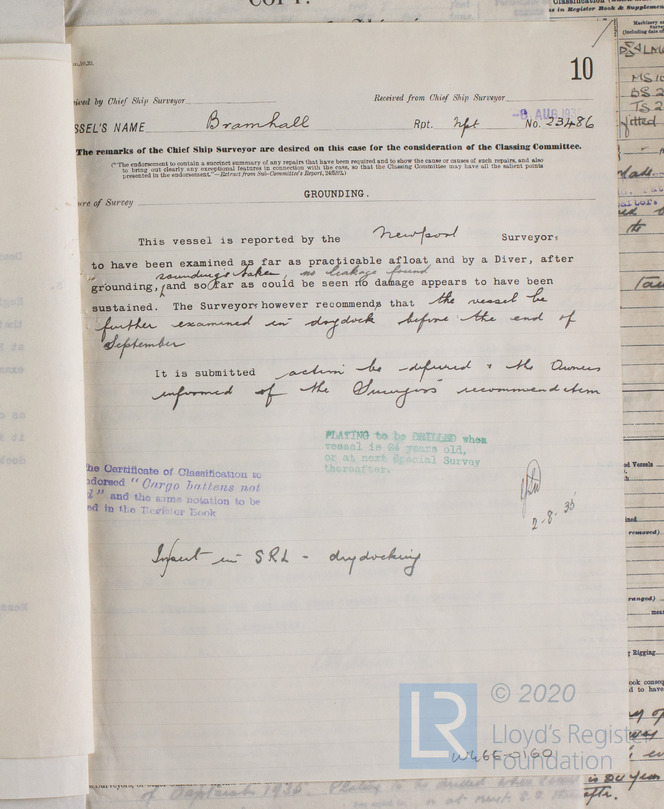 COPY.
10
Received from Chief Ship Surveyor
ived by Chief Ship Surveyor
-8 AUG 193
SSEL'S NAME Bramhall Rpt. Npt No. 23486
The remarks of the Chief Ship Surveyor are desired on this case for the consideration of the Classing Committee.
("The endorsement to contain a succinct summary of any repairs that have been required and to show the cause or causes of such repairs, and also
to bring out clearly any exceptional features in connection with the case, so that the Classing Committee may have all the salient points
presented in the endorsement."—Extract from Sub-Committee's Report,
GROUNDING.
ure of Survey
This vessel is reported by the Newport Surveyor,
to have been examined as far as practicable afloat and by a Diver, after
soundings taken, no leakage found
grounding, and so far as could be seen no damage appears to have been
sustained. The Surveyor however recommends that the vessel be
further examined in drydock before the end of
September
It is submitted action be deferred & the Owners
informed of the Surveyors recommendation
PLATING to be DRILLED when
vessel is 24 years old,
or at next Special Survey
thereafter.
he Certificate of Classification to
ndorsed "Cargo battens not
d" and the same notation to be
ed in the Register Book
2-8-35
Insert in SRL - drydocking
© 2020
LR
Lloyd's Register
Foundation
W466-0160